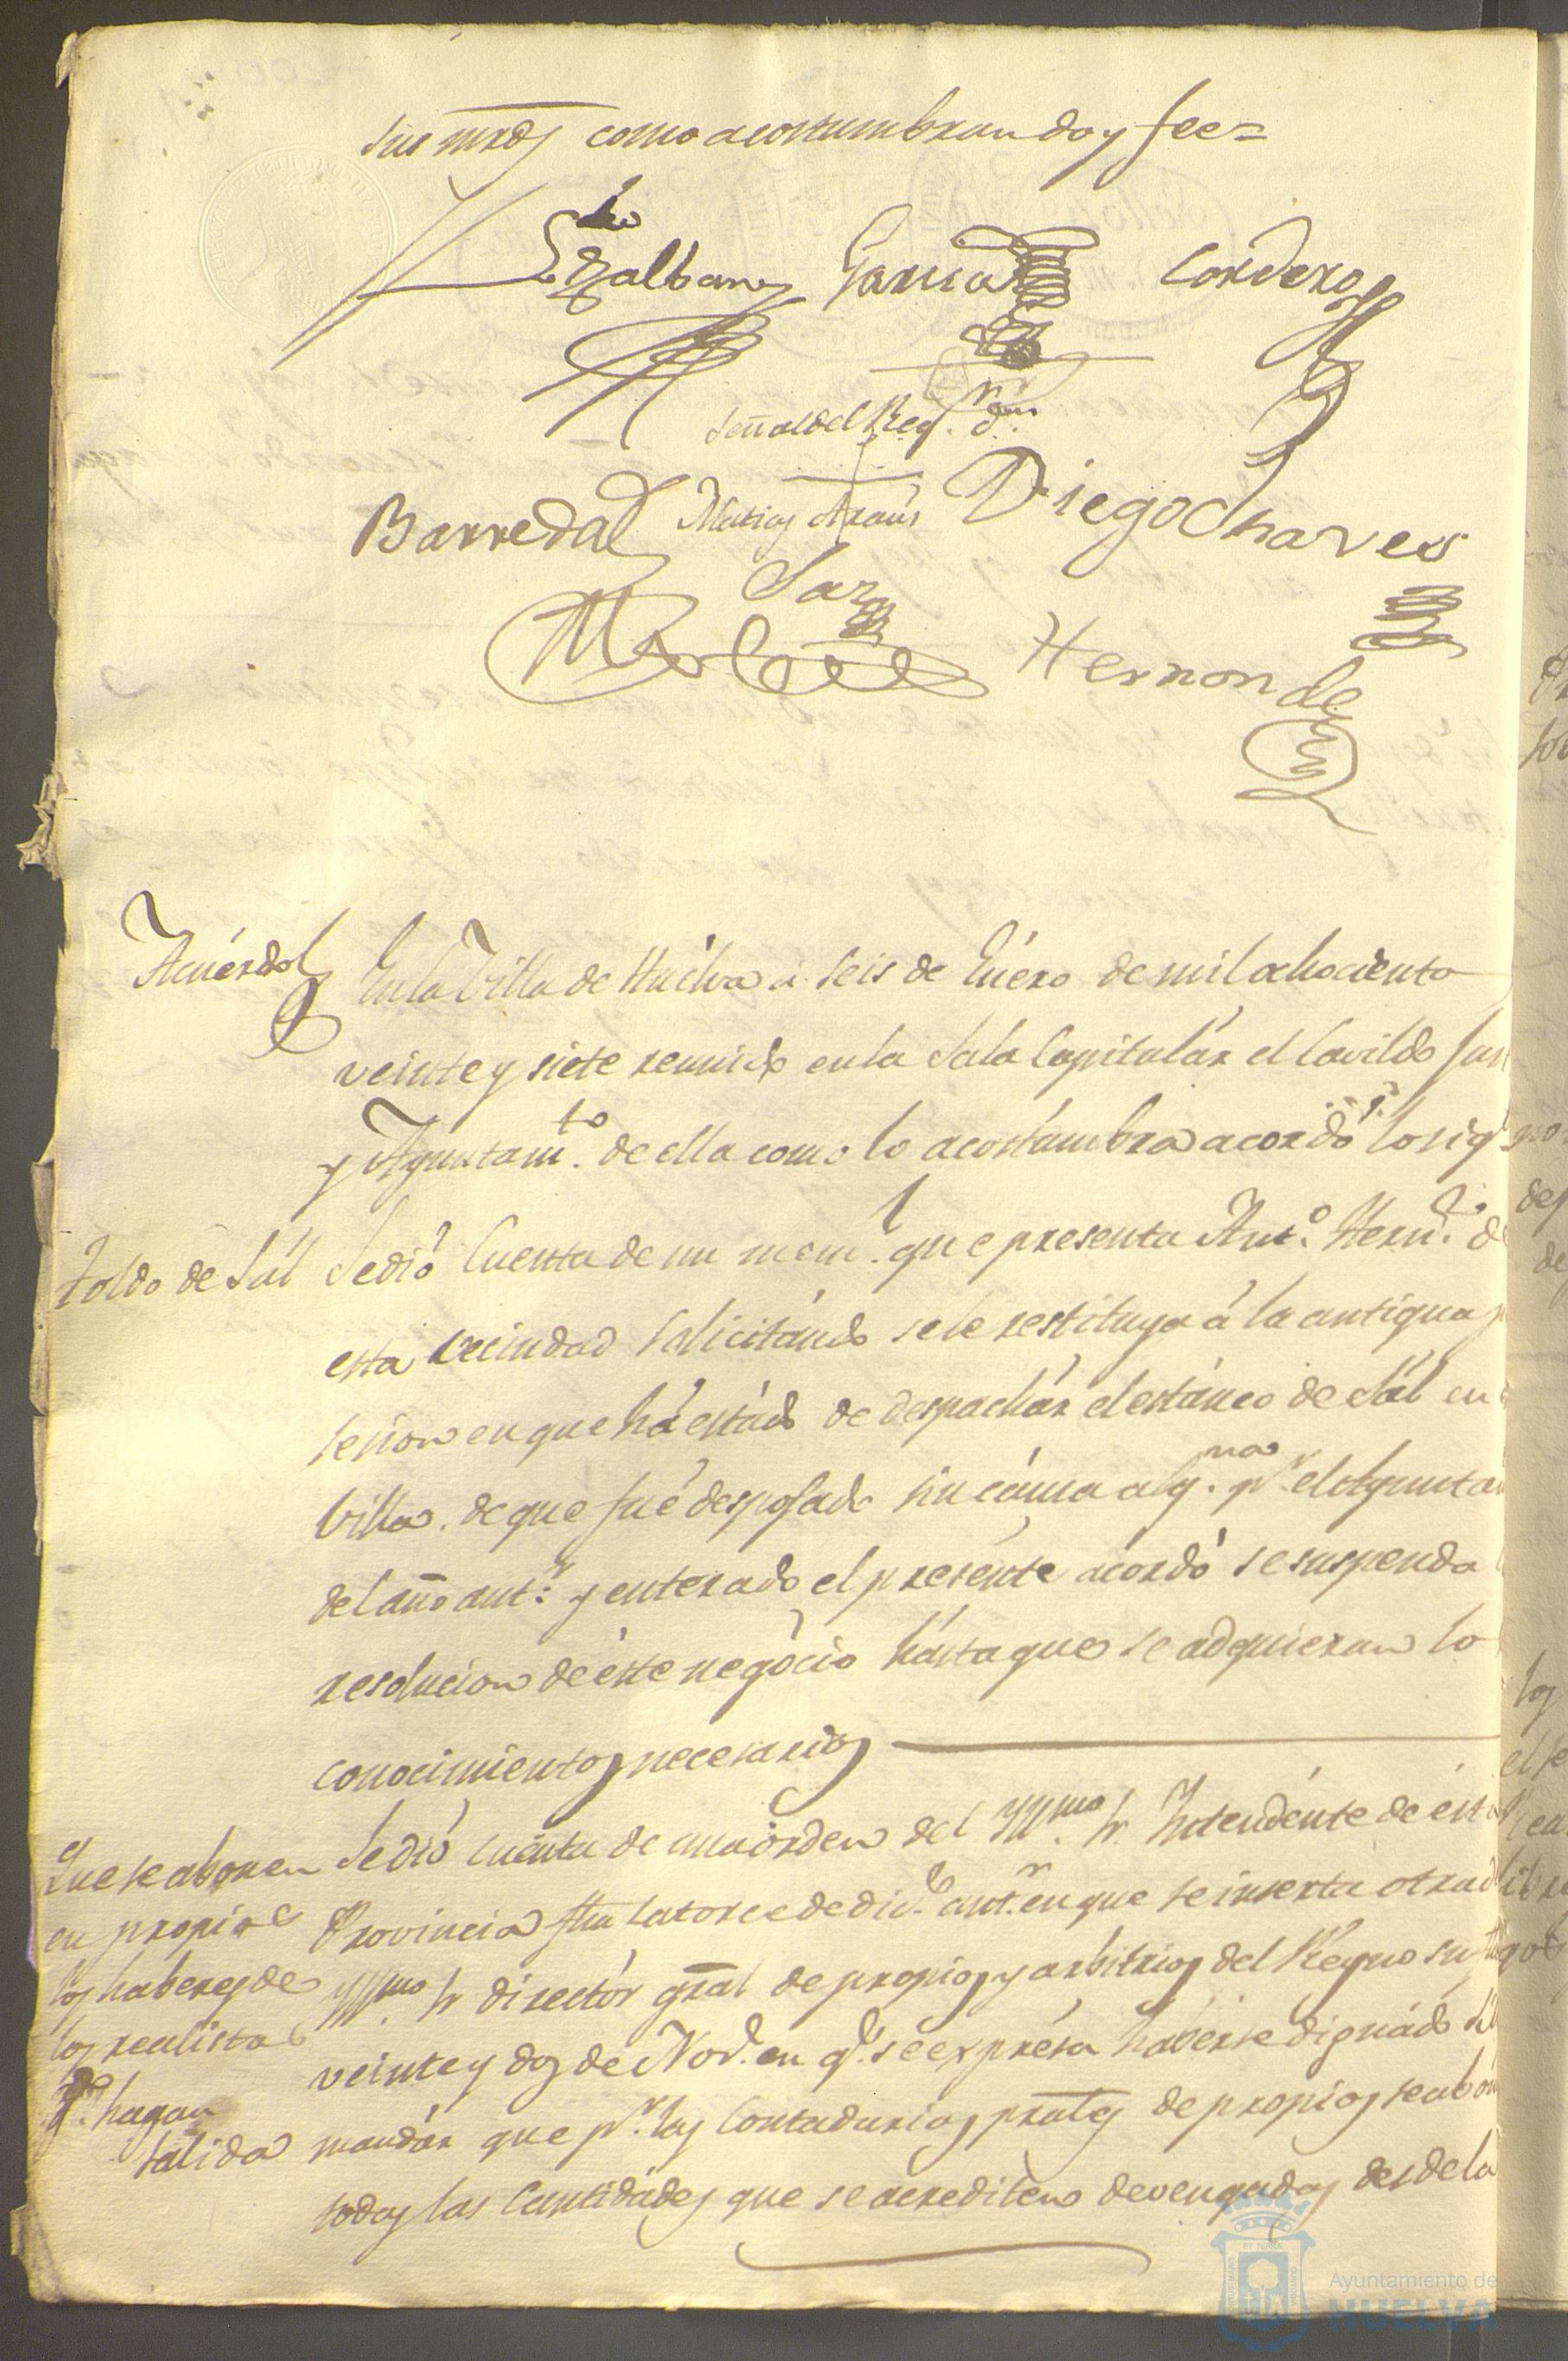 sus mrds como acostumbran doy fee=
Ldo
Galban Garcia Cordero
Señal del Regr. dn.
Barreda Matias Arauz Diego Chaves
Saz
Hernandez
Acuérdo
En la Villa de Huelva á seis de Enéro de mil ochociento
veinte y siete reunido en la Sala Capitulár el Cavildo Jus
y Ayuntamto. de ella como lo acostúmbra acordó lo sigte.
toldo de Sál
Se dió Cuenta de un meml. que presenta Anto. Hernz. de
esta vecindad solicitándo se le restituya á la antigua p
sesion en que há estádo de despachár el estánco de Sál en
Villa, de que fué despojado sin cáusa algna. pr. el Ayunta
del año antr. y enterado el presénte acordó se suspenda
resolucion de éste negócio hásta que se adquieran lo
conocimientos necesarios
Que se abonen
en propios
los haberes de
los realistas
qe. hagan
salida
Se dió cuénta de una órden del Yllmo. Sr. Yntendénte de ést
Provincia fha catorce de dice. antr. en que se inserta otra d
Yllmo Sr diréctor gral de propios y arbitrios del Reyno su fha
veinte y dos de Nove. en qe. se exprésa habérse dignádo S.
mandár que pr. las Contadurias prales de propios se abon
todas las Cantidádes que se acrediten devengadas desde la
Ayuntamiento de
HUELVA